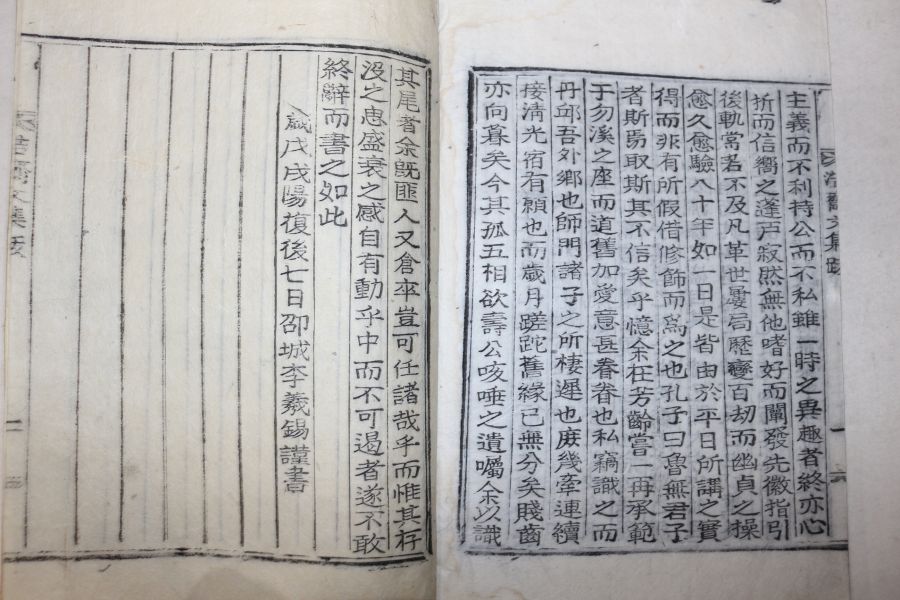 主義而不利持公而不私雖一時之異趣者終亦心
折而信嚮之蓬戶寂然無他嗜好而闡發先徽指引
後軌常若不及凡革世屢局歷變百劫而幽貞之操
愈久愈驗八十年如一日是皆由於平日所講之實
得而非有所假借修飾而爲之也孔子曰魯無君子
者斯焉取斯其不信矣乎憶余在芳齡嘗一再承範
于勿溪之座而道舊加愛意甚眷眷也私竊識之而
丹邱吾外鄕也師門諸子之所棲遲也庶幾牽連續
接淸光宿有願也而歲月蹉跎舊緣已無分矣賤齒
亦向暮矣今其孤五相欲壽公咳唾之遺囑余以識
其尾者余旣匪人又倉卒豈可任諸哉乎而惟其存
沒之思盛衰之感自有動乎中而不可遏者遂不敢
終辭而書之如此
歲戊戌陽復後七日邵城李羲錫謹書
文集跋
一
文集跋
二